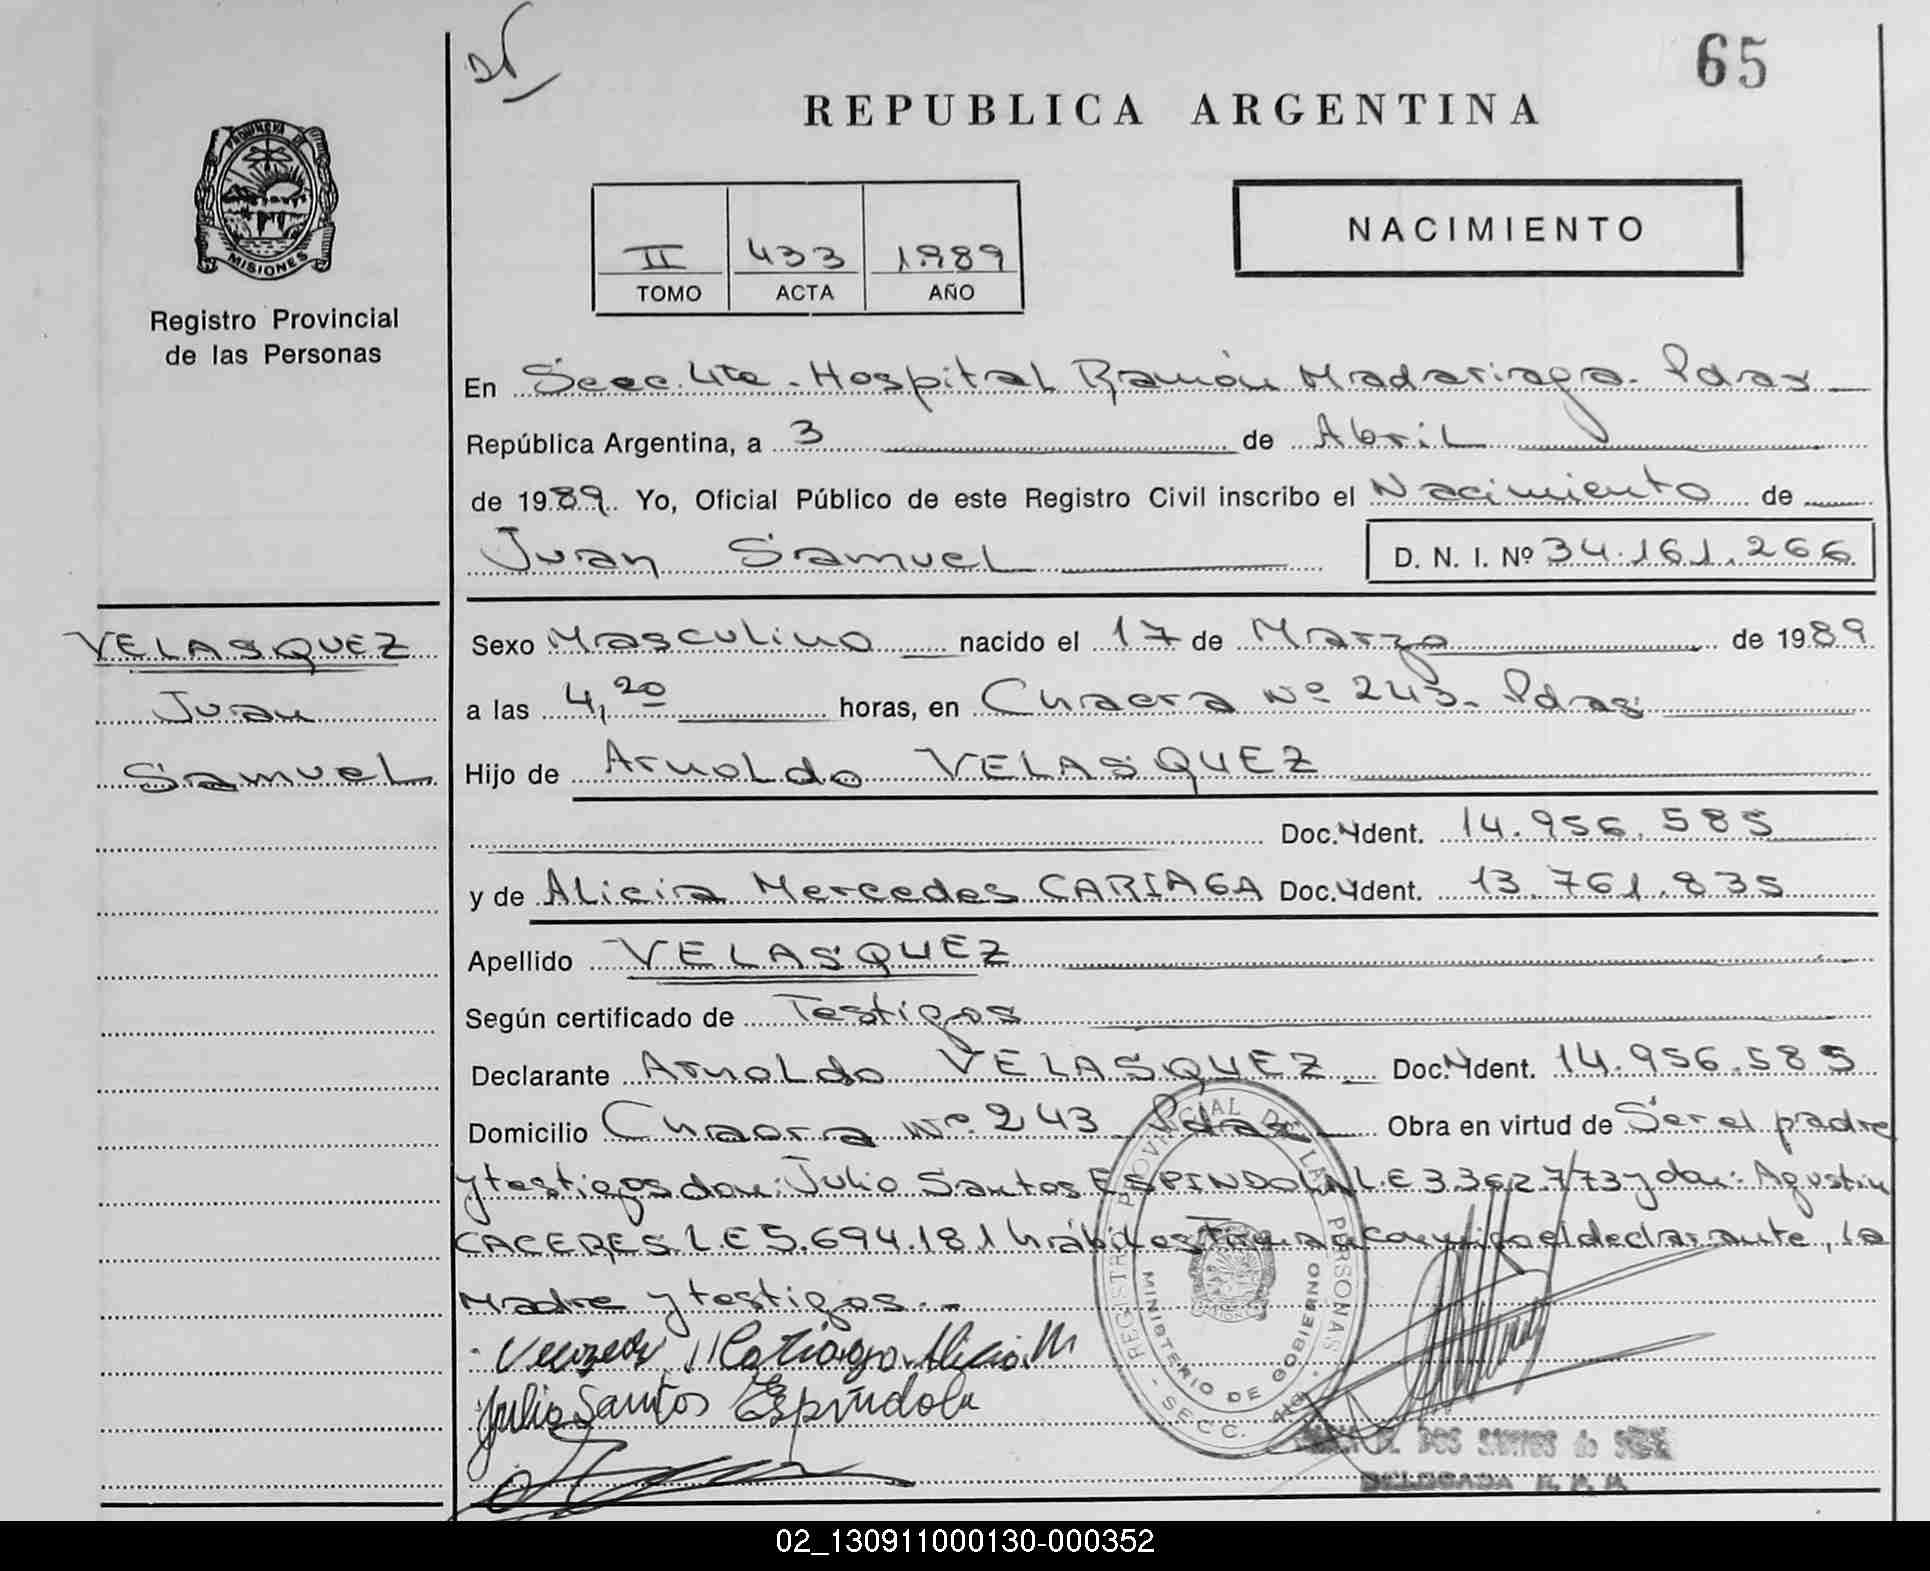 65
REPUBLICA ARGENTINA
PROVINCIA DE
MISIONES
Registro Provincial
de las Personas
II 433 1989
TOMO ACTA AÑO
NACIMIENTO
En Secc. 4ta. Hospital Ramón Madariaga. Pdas
República Argentina, a 3 de Abril
de 1989. Yo, Oficial Público de este Registro Civil inscribo el Nacimiento de
Juan Samuel D. N. I. Nº 34.161.266
VELASQUEZ
Juan
Samuel
Sexo Masculino nacido el 17 de Marzo de 1989
a las 4,20 horas, en Chacra Nº 243. Pdas
Hijo de Arnoldo VELASQUEZ
Doc. Ident. 14.956.585
y de Alicia Mercedes CARIAGA Doc. Ident. 13.761.835
Apellido VELASQUEZ
Según certificado de Testigos
Declarante Arnoldo VELASQUEZ Doc. Ident. 14.956.585
Domicilio Chacra Nº 243 Pdas Obra en virtud de Ser el padre
y testigos don: Julio Santos ESPINDOLA L.E 3.362.773 y don: Agustin
CACERES L.E 5.694.181 hábiles Firman conmigo el declarante, la
Madre y testigos.-
Cariaga Alicia M
Julio Santos Espíndola
REGISTRO PROVINCIAL DE LAS PERSONAS
MINISTERIO DE GOBIERNO
SECC.
DOS SANTOS de
DELEGADA
02_130911000130-000352